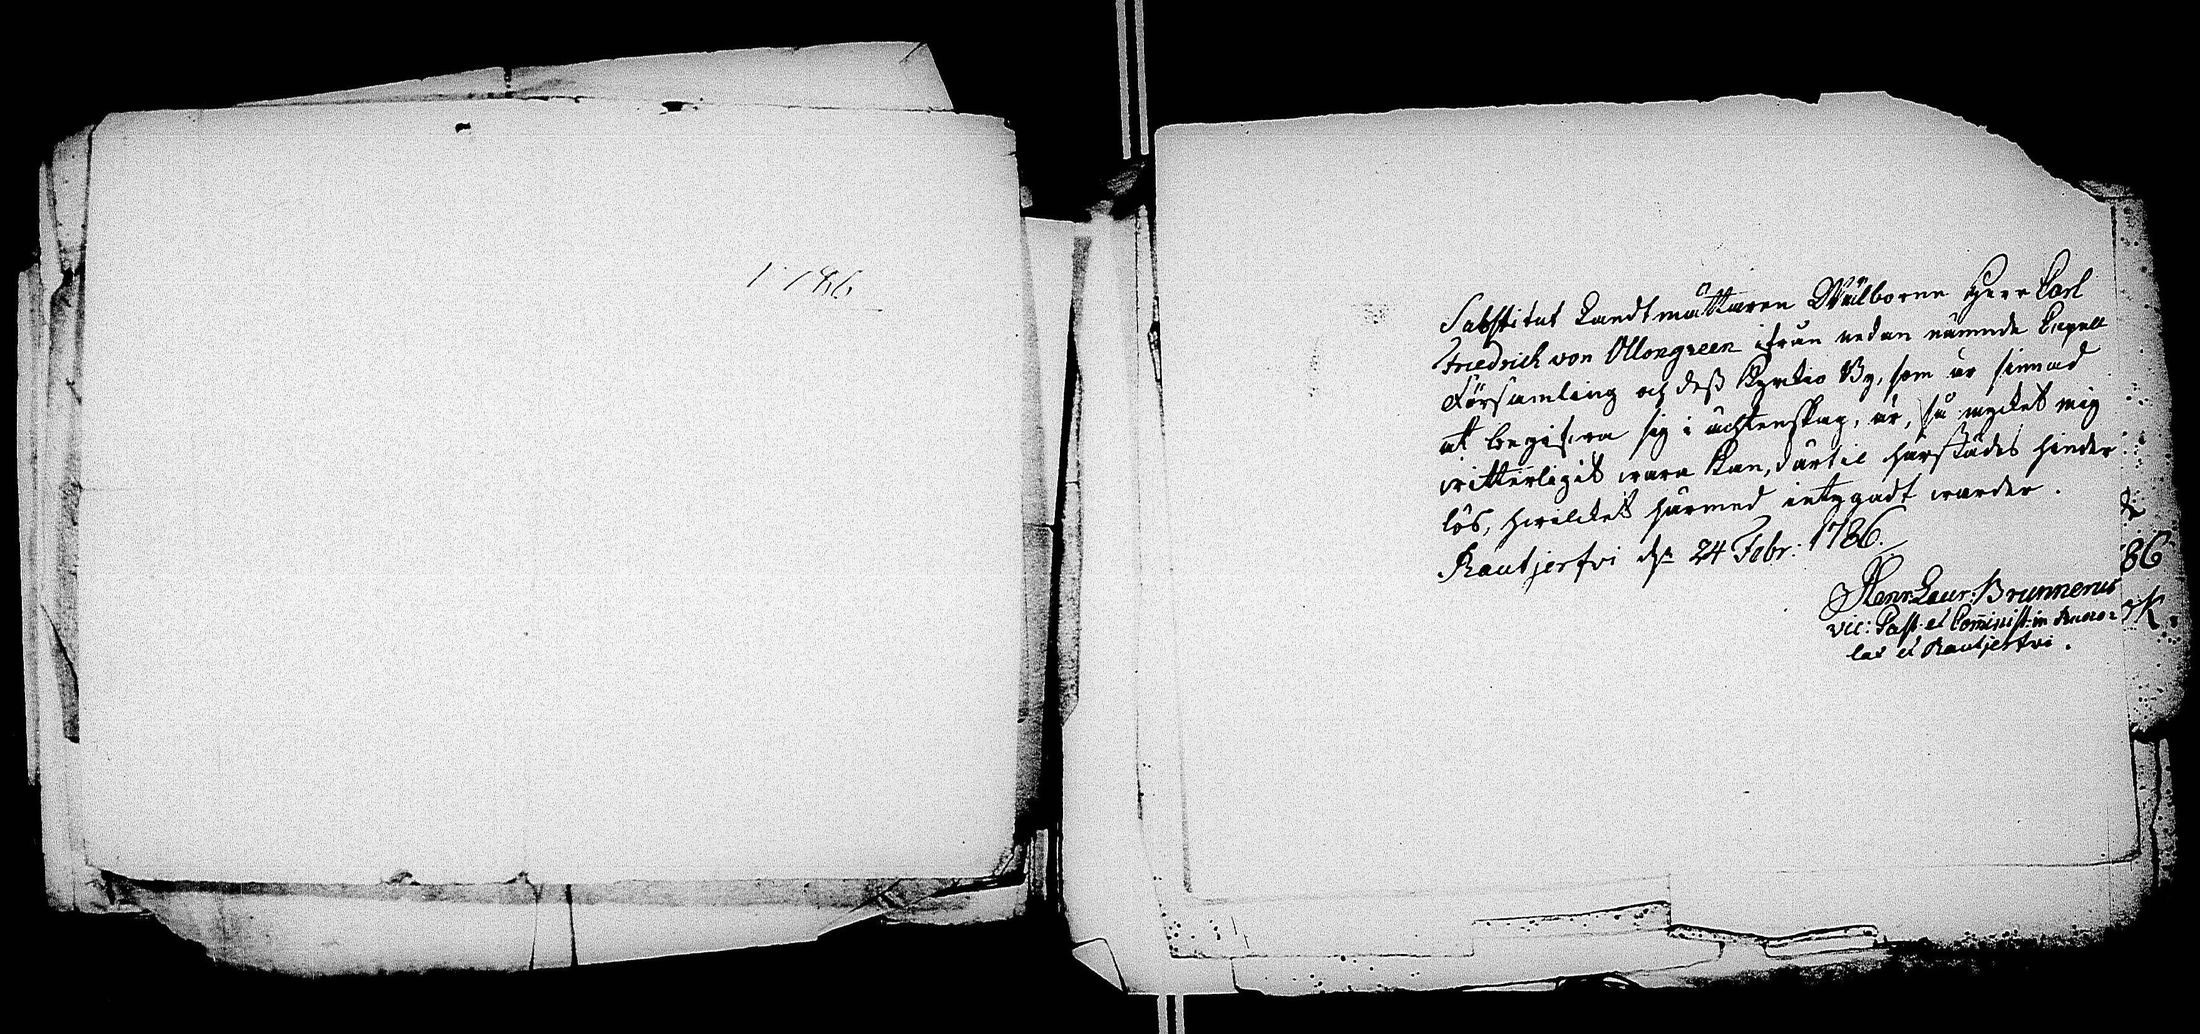 1786
Substitut Landtmättaren Wälborne Herr Carl
Friedrich von Ollongreen ifrån nedan nämnde Capell
Församling och dess Kyrckio By, som är sinnad
at begifwa sig i ächtenskap, är, så mycket mig
witterligit wara kan, därtil härstädes hinder
lös, hwilcket härmed intygadt warder.
Rautjerfvi dn 24 Febr: 1786.
Henr: Laur: Brunnerus
vic: Past: et Comminist: in Ruoco=
lax et Rautjerfvi.
86